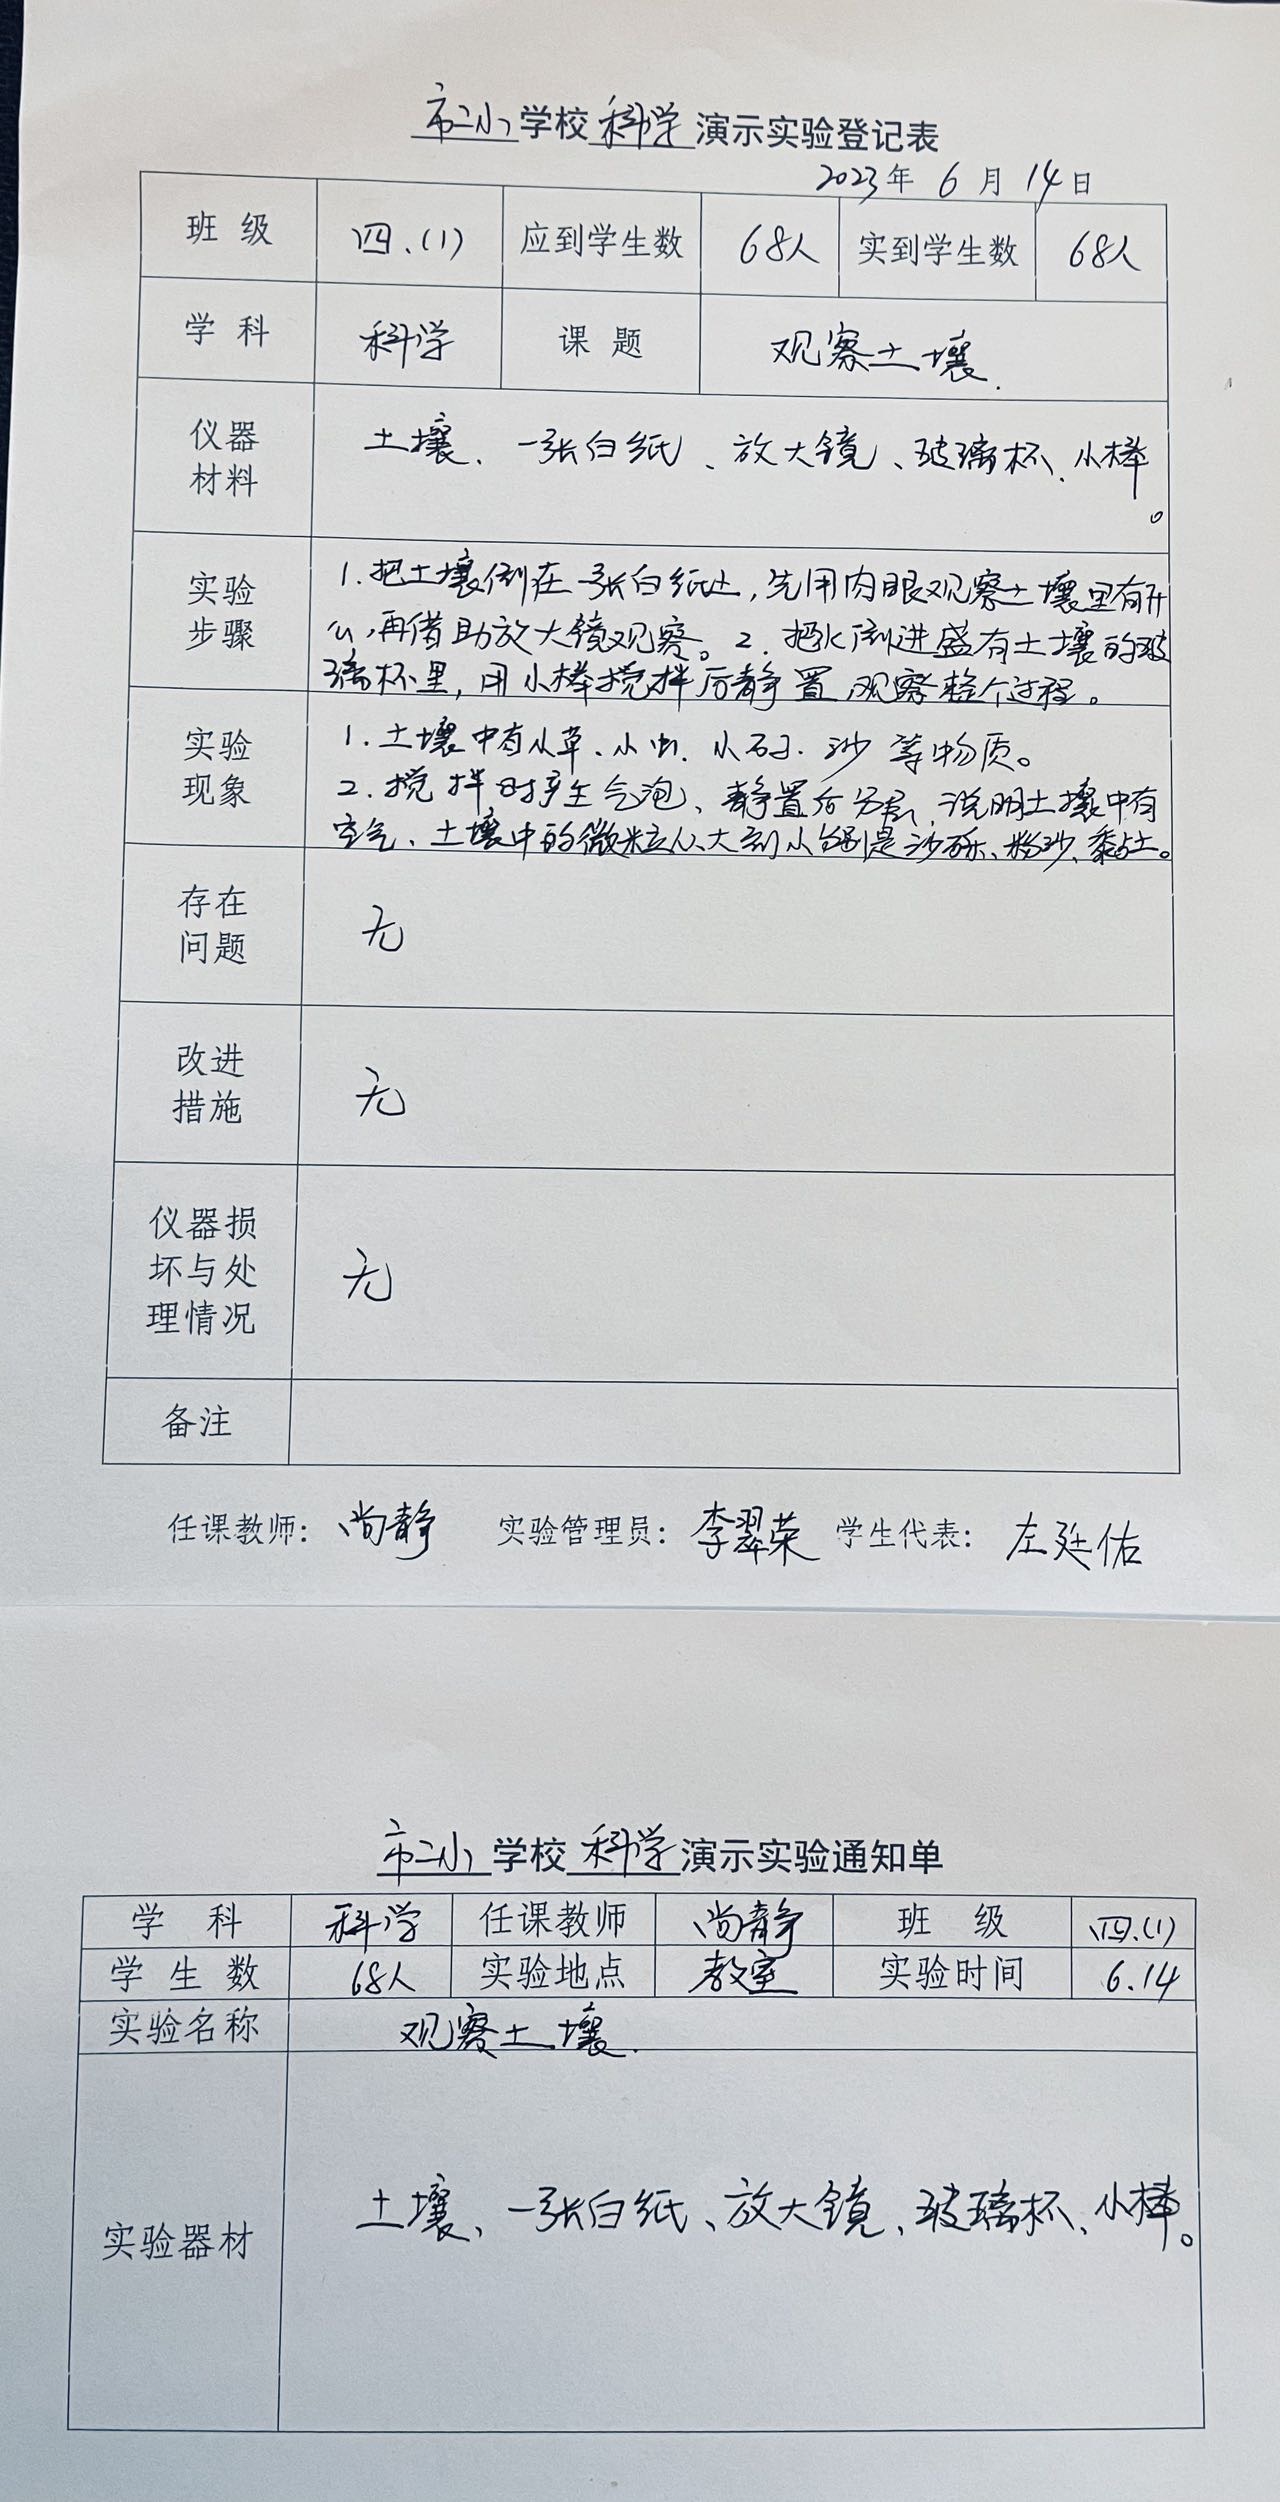 市二小学校科学演示实验登记表
2023年 6月 14日
班级 四.(1) 应到学生数 68人 实到学生数 68人
学科 科学 课题 观察土壤.
仪器
材料
土壤、一张白纸、放大镜、玻璃杯、小棒
。
实验
步骤
1.把土壤倒在一张白纸上,先用肉眼观察土壤里有什
么,再借助放大镜观察。2.把水倒进盛有土壤的玻
璃杯里,用小棒搅拌后静置观察整个过程。
实验
现象
1.土壤中有小草、小虫、小石子、沙等物质。
2.搅拌时产生气泡、静置后分层,说明土壤中有
空气、土壤中的微粒从大到小分别是沙砾、粉沙、黏土。
存在
问题
无
改进
措施
无
仪器损
坏与处
理情况
无
备注
任课教师:尚静 实验管理员:李翠荣 学生代表:左廷佑
市二小学校科学演示实验通知单
学科 科学 任课教师 尚静 班级 四.(1)
学生数 68人 实验地点 教室 实验时间 6.14
实验名称 观察土壤.
实验器材 土壤、一张白纸、放大镜、玻璃杯、小棒。